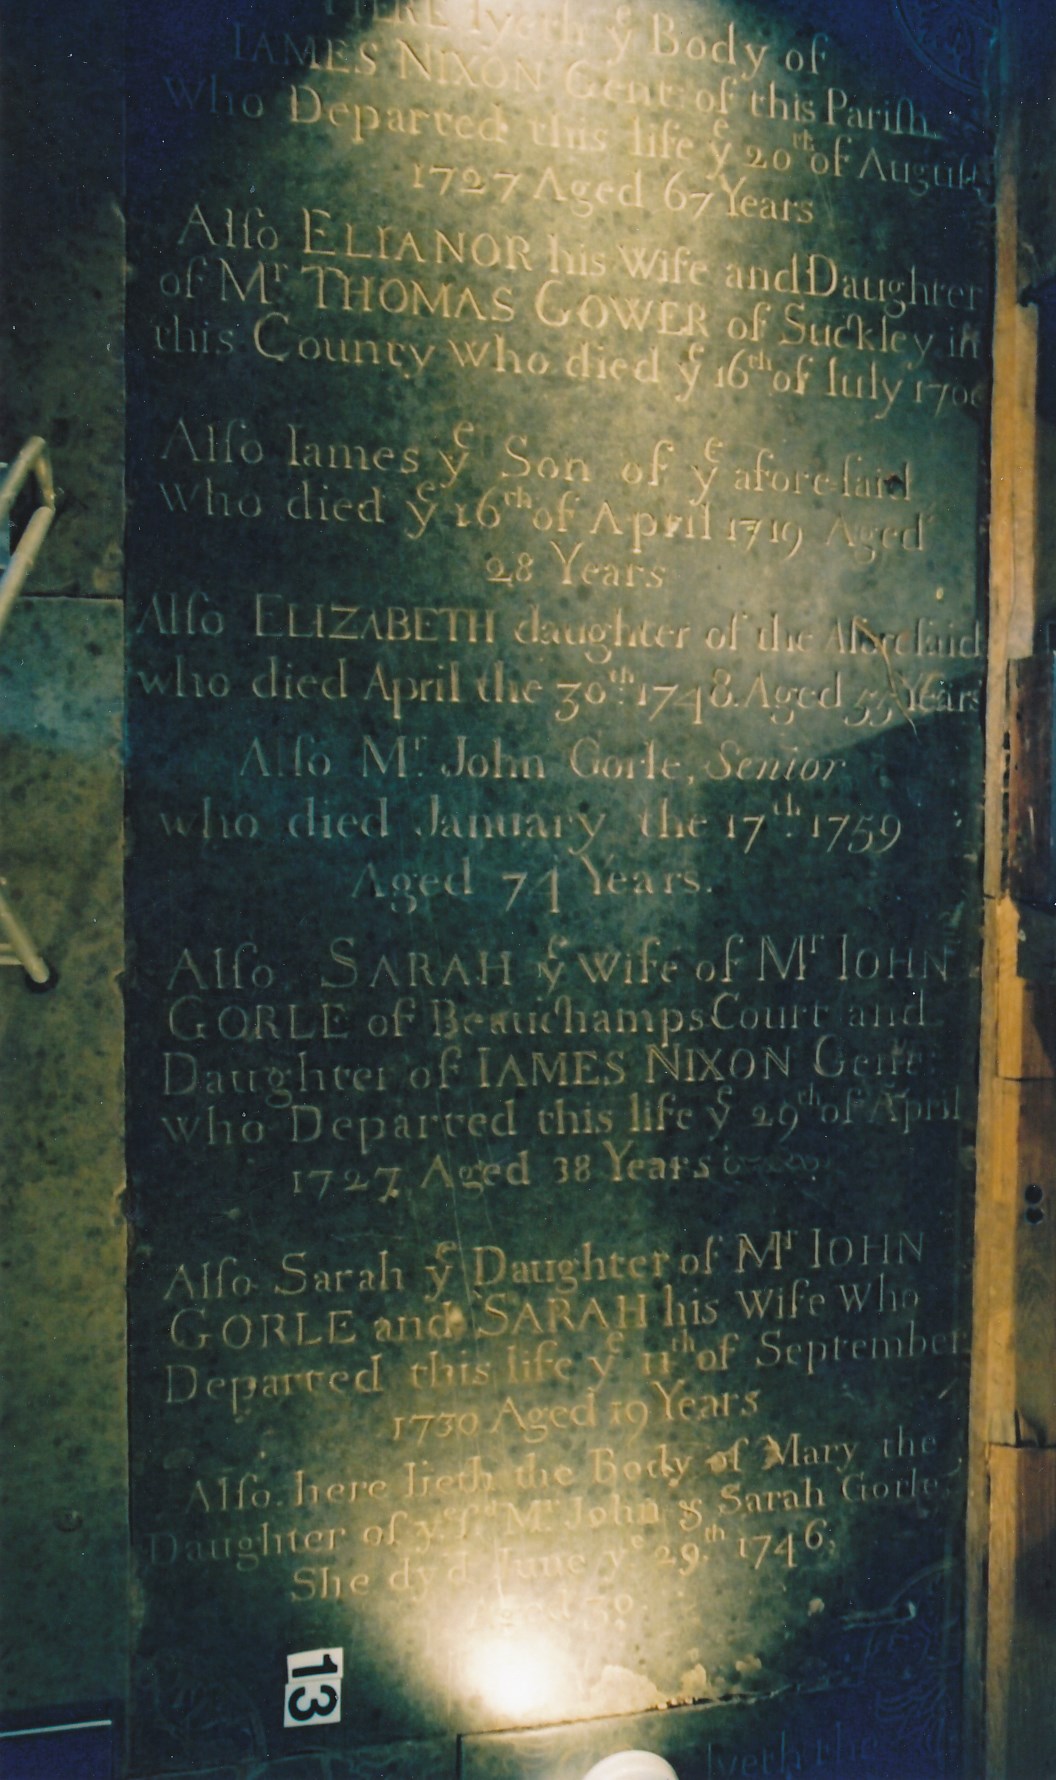 HERE lyeth yͤ Body of
IAMES NIXON Gent: of this Pariſh.
Who Departed this life yͤ 20th of Auguſt
1727 Aged 67 Years
Alſo ELIANOR his Wife and Daughter
of Mr THOMAS GOWER of Suckley in
this County who died yͤ 16th of Iuly
Alſo Iames yͤ Son of yͤ afore-ſaid
Who died yͤ 16th of April 1719 Aged
28 Years
Alſo ELIZABETH daughter of the Aforeſaid
who died April the 30th. 1748. Aged 55 Years
Alſo Mr. John Gorle, Senior
who died January the 17th. 1759
Aged 74 Years.
Alſo. SARAH yͤ Wife of Mr IOHN
GORLE of Beauchamps Court and
Daughter of IAMES NIXON Gent:
who Departed this life yͤ 29th of April
1727, Aged 38 Years
Alſo Sarah yͤ Daughter of Mr IOHN
GORLE and SARAH his Wife Who
Departed this life yͤ 11th of September
1730 Aged 19 Years
Alſo. here lieth the Body of Mary the
Daughter of yͤ ſd Mr John & Sarah Gorle,
She dy'd June yͤ 29.th 1746;
Aged 30.
13
lyeth the